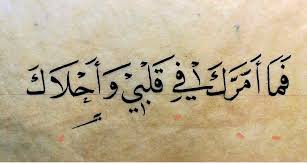 فَمَا أَمَرَّكَ فِي قَلْبِيْ وَأَحْلَاكَ